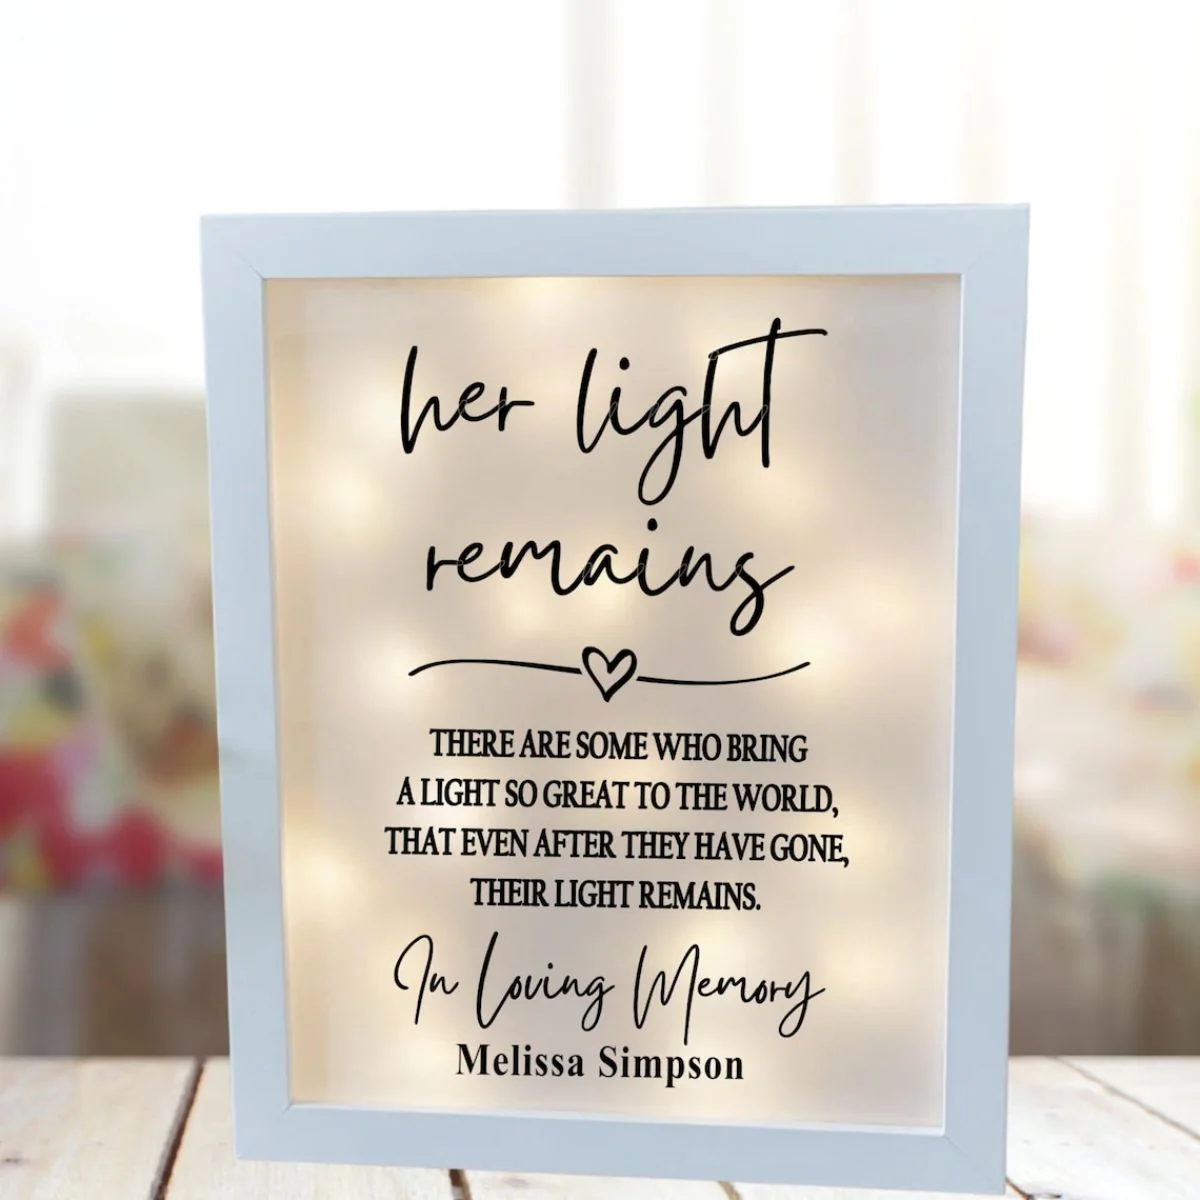 her light
remains
THERE ARE SOME WHO BRING
A LIGHT SO GREAT TO THE WORLD,
THAT EVEN AFTER THEY HAVE GONE,
THEIR LIGHT REMAINS.
In Loving Memory
Melissa Simpson